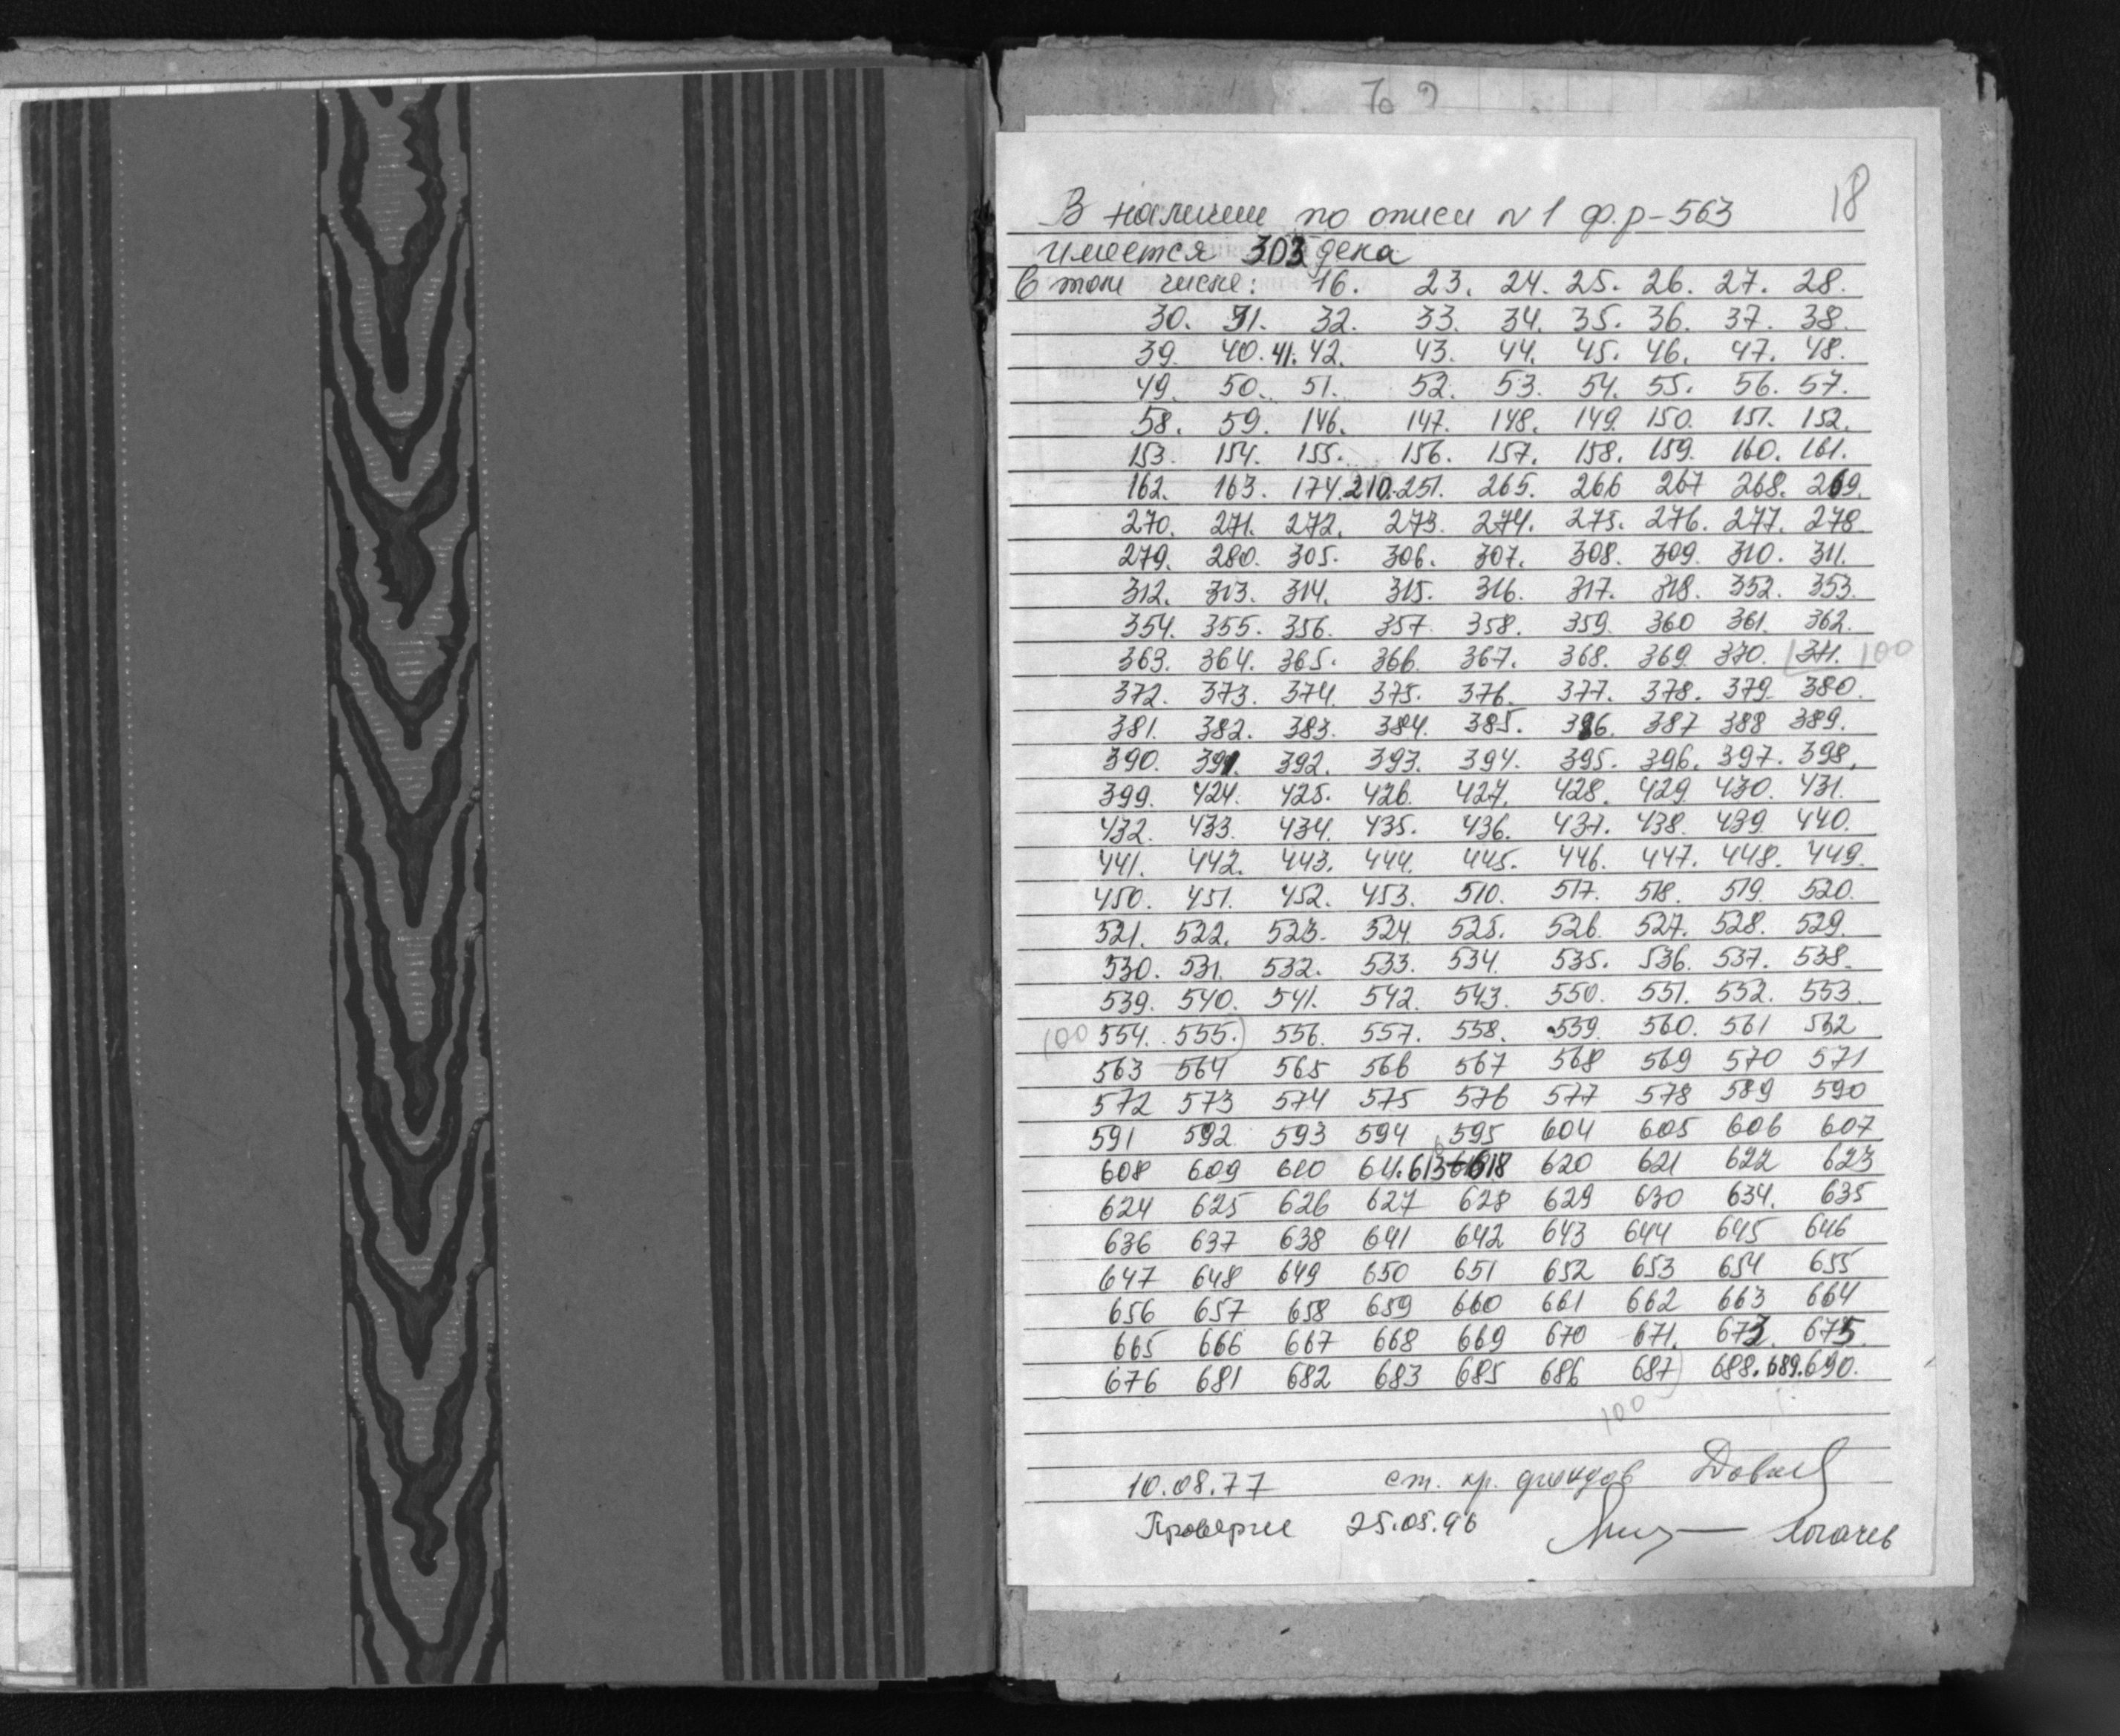 18
В наличии по описи N 1 ф.р-563
имеется 303 дела
в том числе: 16. 23. 24. 25. 26. 27. 28.
30. 31. 32. 33. 34. 35. 36. 37. 38.
39. 40. 41. 42. 43. 44. 45. 46. 47. 48.
49. 50. 51. 52. 53. 54. 55. 56. 57.
58. 59. 146. 147. 148. 149. 150. 151. 152.
153. 154. 155. 156. 157. 158. 159. 160. 161.
162. 163. 174. 210. 251. 265. 266 267 268. 269.
270. 271. 272. 273. 274. 275. 276. 277. 278.
279. 280. 305. 306. 307. 308. 309. 310. 311.
312. 313. 314. 315. 316. 317. 318. 352. 353.
354. 355. 356. 357. 358. 359. 360 361. 362.
363. 364. 365. 366. 367. 368. 369. 370. (371. 100
372. 373. 374. 375. 376. 377. 378. 379. 380.
381. 382. 383. 384. 385. 386. 387 388 389.
390. 391. 392. 393. 394. 395. 396. 397. 398.
399. 424. 425. 426. 427. 428. 429. 430. 431.
432. 433. 434. 435. 436. 437. 438. 439. 440.
441. 442. 443. 444. 445. 446. 447. 448. 449.
450. 451. 452. 453. 510. 517. 518. 519. 520.
521. 522. 523. 524. 525. 526. 527. 528. 529.
530. 531. 532. 533. 534. 535. 536. 537. 538.
539. 540. 541. 542. 543. 550. 551. 552. 553.
100 554. 555.) 556. 557. 558. 559. 560. 561 562
563 564 565 566 567 568 569 570 571
572 573 574 575 576 577 578 589 590
591 592 593 594 595 604 605 606 607
608 609 610 611. 613 618 620 621 622 623
624 625 626 627 628 629 630 634. 635
636 637 638 641 642 643 644 645 646
647 648 649 650 651 652 653 654 655
656 657 658 659 660 661 662 663 664
665 666 667 668 669 670 671. 673. 675.
676 681 682 683 685 686 687) 688. 689. 690.
100
10.08.77 ст. хр. фондов
25.05.96